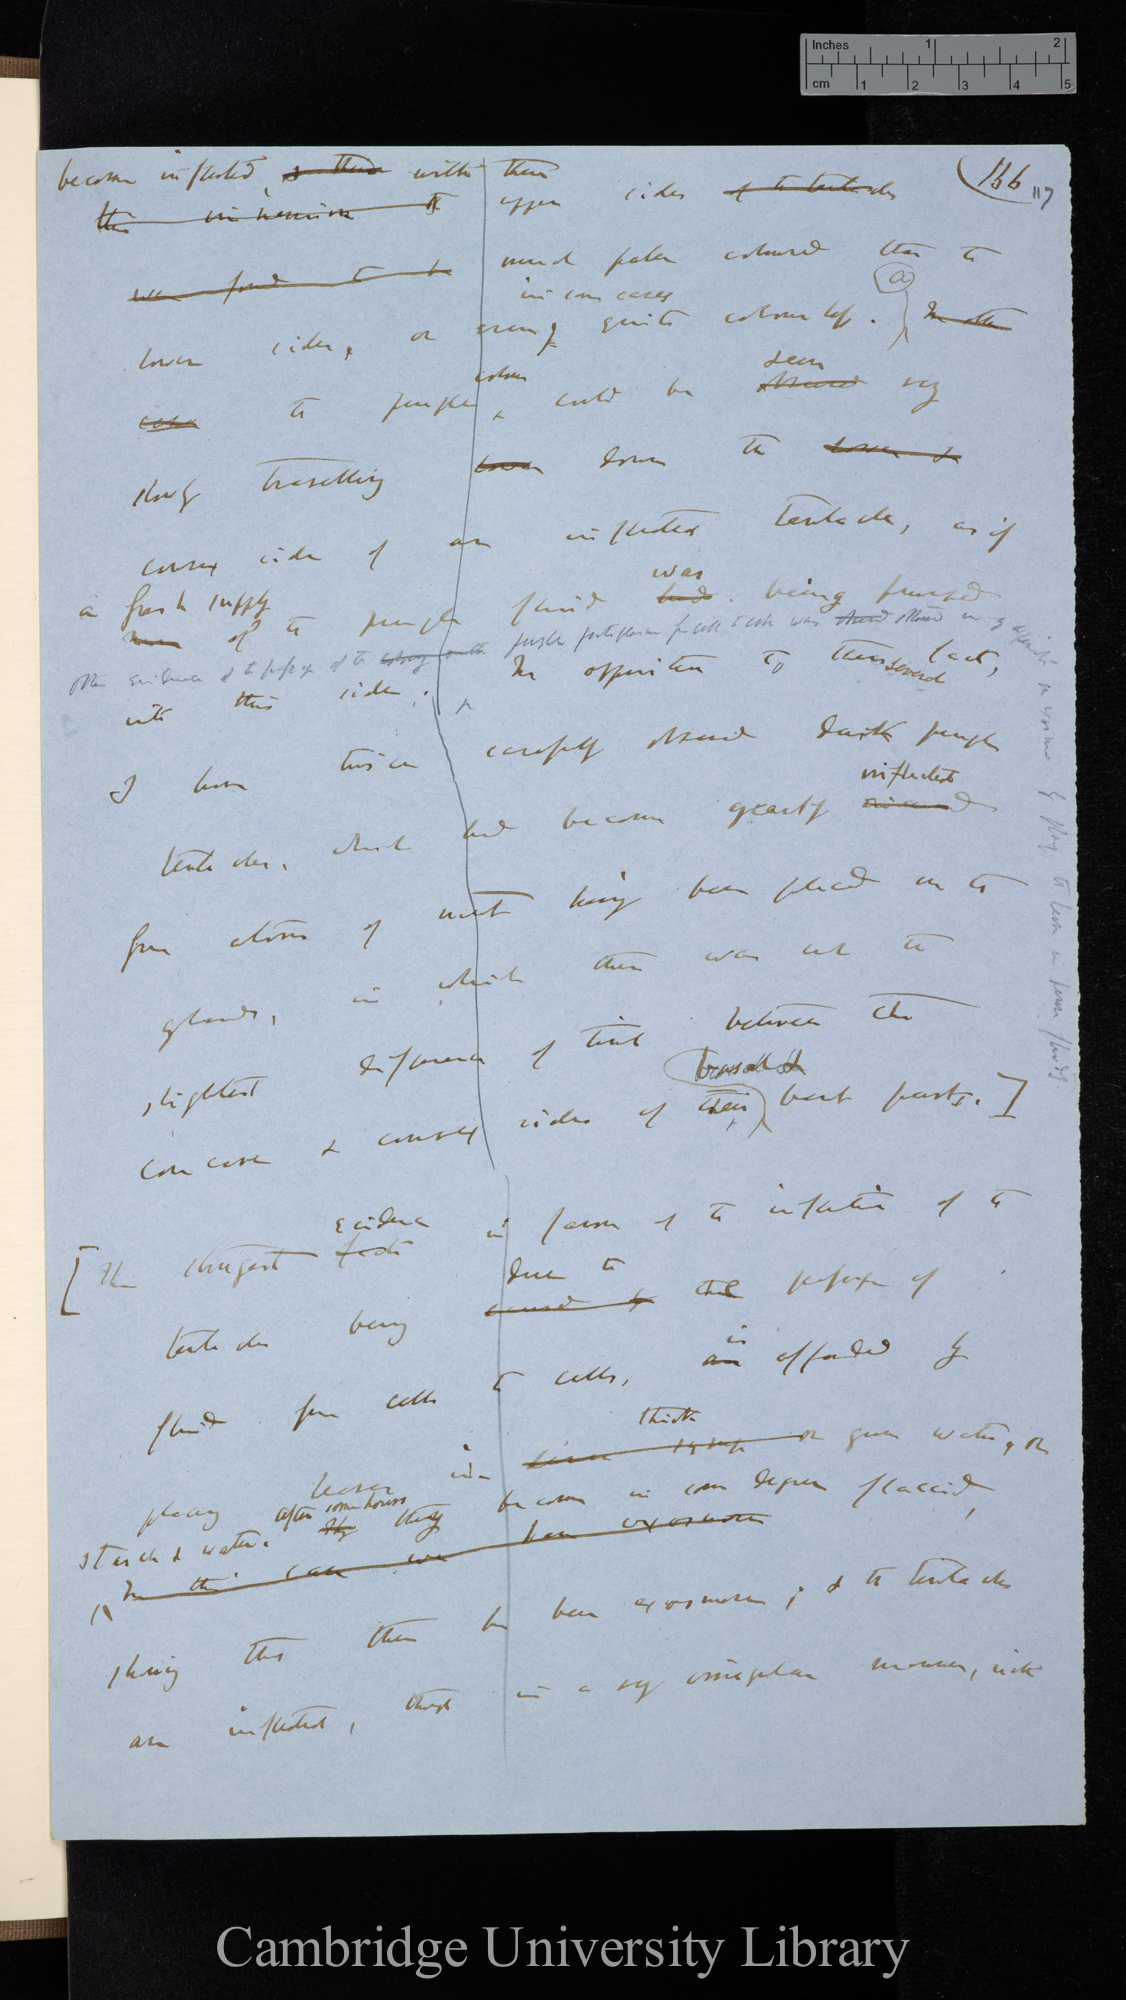 Inches 1 2
cm 1 2 3 4 5
166
117
become inflected, & their with their
the immersion of upper sides of the tentacles
were found to be much paler coloured than the
in some cases
lower sides, or even quite colourless. (a) In other
cases the purple colour could be observed seen very
slowly travelling down down the lower &
convex side of an inflected tentacle, as if
a fresh supply was
of the purple fluid had being pumped
Other evidence of the passage of the purple protoplasm from cell to cell was
into this side. In opposition to these several facts,
I have twice carefully observed dark purple
inflected
tentacles, which had become greatly
from atoms of meat having been placed on the
glands, in which there was not the
slightest difference of tint between the
basal &
concave & convex sides of their bent parts.]
evidence
[The strongest facts in favour of the inflection of the
due to
tentacles being caused by the passage of
is
fluid from cells to cells, are afforded by
thick
placing leaves in syrup or gum water, or
starch & water. After some hours they become in some degree flaccid,
In this case we have exosmose
shewing that there has been exosmose; & the tentacles
are inflected, though in a very irregular manner, with
Cambridge University Library